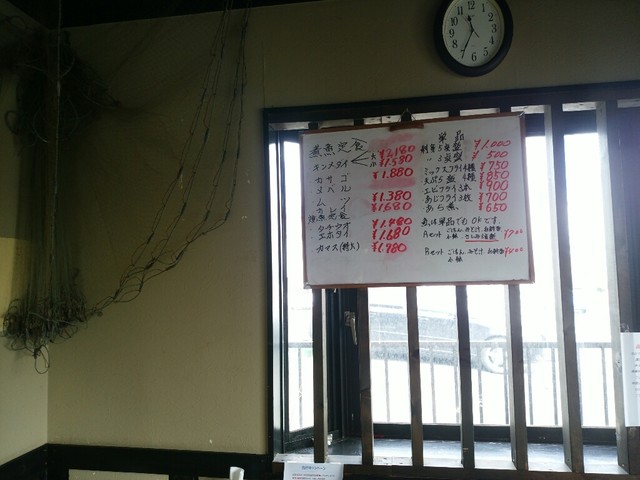 煮魚定食
キンメダイ 大 ¥2,180
小 ¥1,580
カサゴ ¥1,880
メバル
ムツ ¥1,380
カレイ ¥1,680
タチウオ ¥1,480
エボダイ ¥1,680
カマス(特大) ¥1,780
単品
刺身5点盛 ¥1,000
〃3点盛 ¥500
ミックスフライ4種 ¥750
天ぷら盛4種 ¥850
エビフライ3本 ¥900
あじフライ3枚 ¥700
あら煮 ¥650
煮は単品でもOKです。
Aセット ごはん、みそ汁、お新香 ¥700
小鉢
Bセット ごはん みそ汁 お新香 ¥400
小鉢